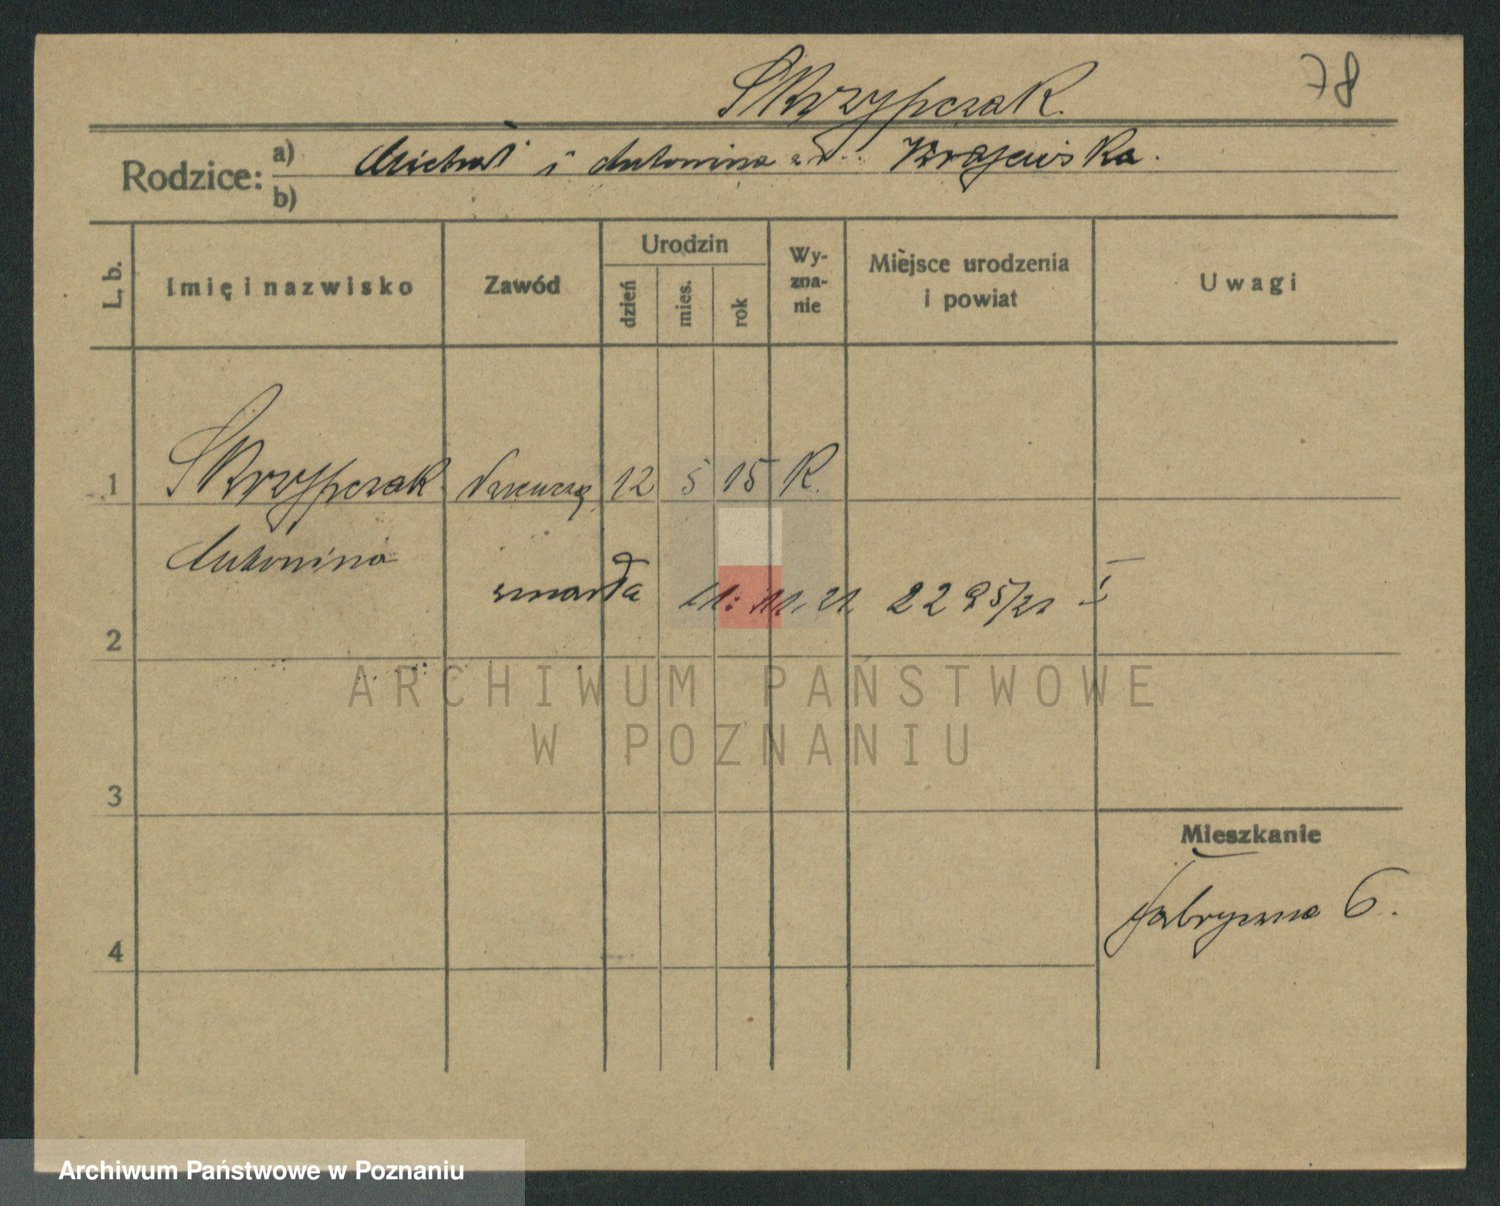 Skrzypczak
78
Rodzice: a) Michał i Antonina z d. Krajewska.
b)
L. b.
Imię i nazwisko
Zawód
Urodzin
dzień
mies.
rok
Wy-
zna-
nie
Miejsce urodzenia
i powiat
Uwagi
1 Skrzypczak 12 5 15 K.
Antonina
zmarła 11. 11. 21 2295/21 I
2
3
4
Mieszkanie
Fabryczna 6.
ARCHIWUM PAŃSTWOWE
W POZNANIU
Archiwum Państwowe w Poznaniu